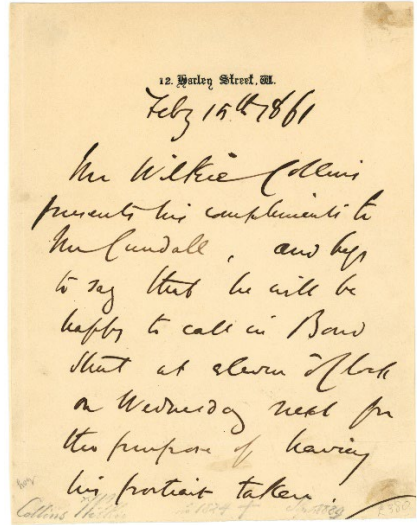 12. Harley Street, W.
Feby 15th 1861
Mr Wilkie Collins
presents his compliments to
Mr Cundall, and begs
to say that he will be
happy to call in Bond
Street at eleven o'Clock
on Wednesday next for
the purpose of having
his portrait taken.
Collins Wilkie